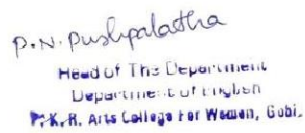 P.N. Pushpalatha
Head of The Department
Department of English
P.K.R. Arts College For Women, Gobi.